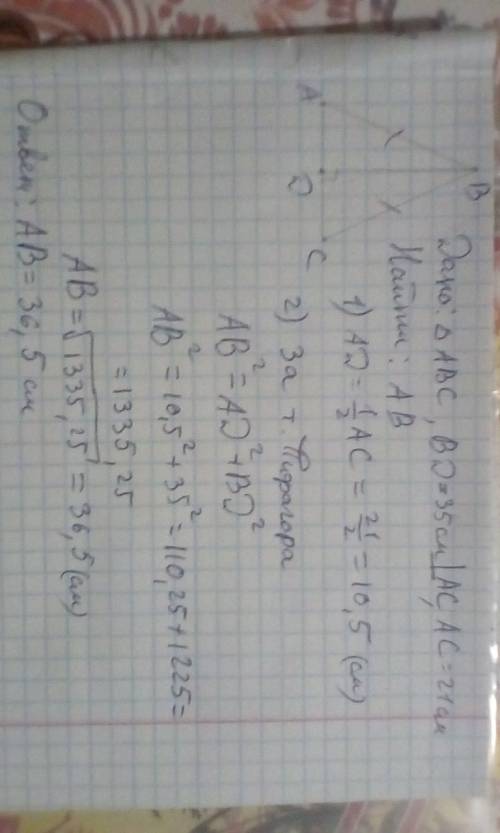 Дано: △ABC, BD=35см ⊥ AC, AC=21см
Найти: AB
1) AD = 1/2 AC = 21/2 = 10,5 (см)
B
A D C
2) За т. Пифагора
AB² = AD² + BD²
AB² = 10,5² + 35² = 110,25 + 1225 =
= 1335,25
AB = √1335,25 = 36,5 (см)
Ответ: AB = 36,5 см